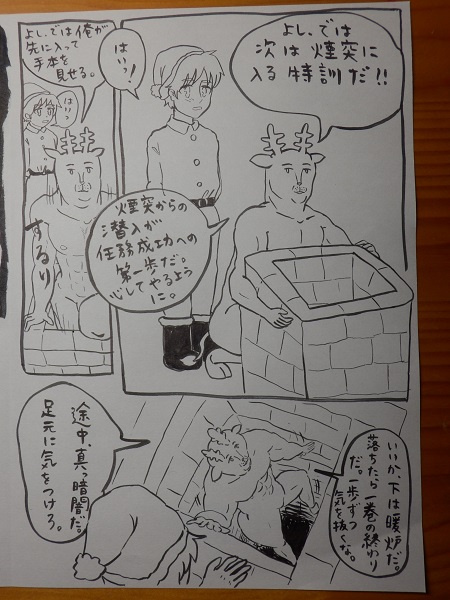 よし、では
次は煙突に
入る特訓だ!!
はいっ!
煙突からの
潜入が
任務成功への
第一歩だ。
心してやるよう
に。
よし、では俺が
先に入って
手本を
見せる。
はいっ
するり
いいか、下は暖炉だ。
落ちたら一巻の終わり
だ。一歩ずつ
気を抜くな。
途中、真っ暗闇だ。
足元に気をつけろ。